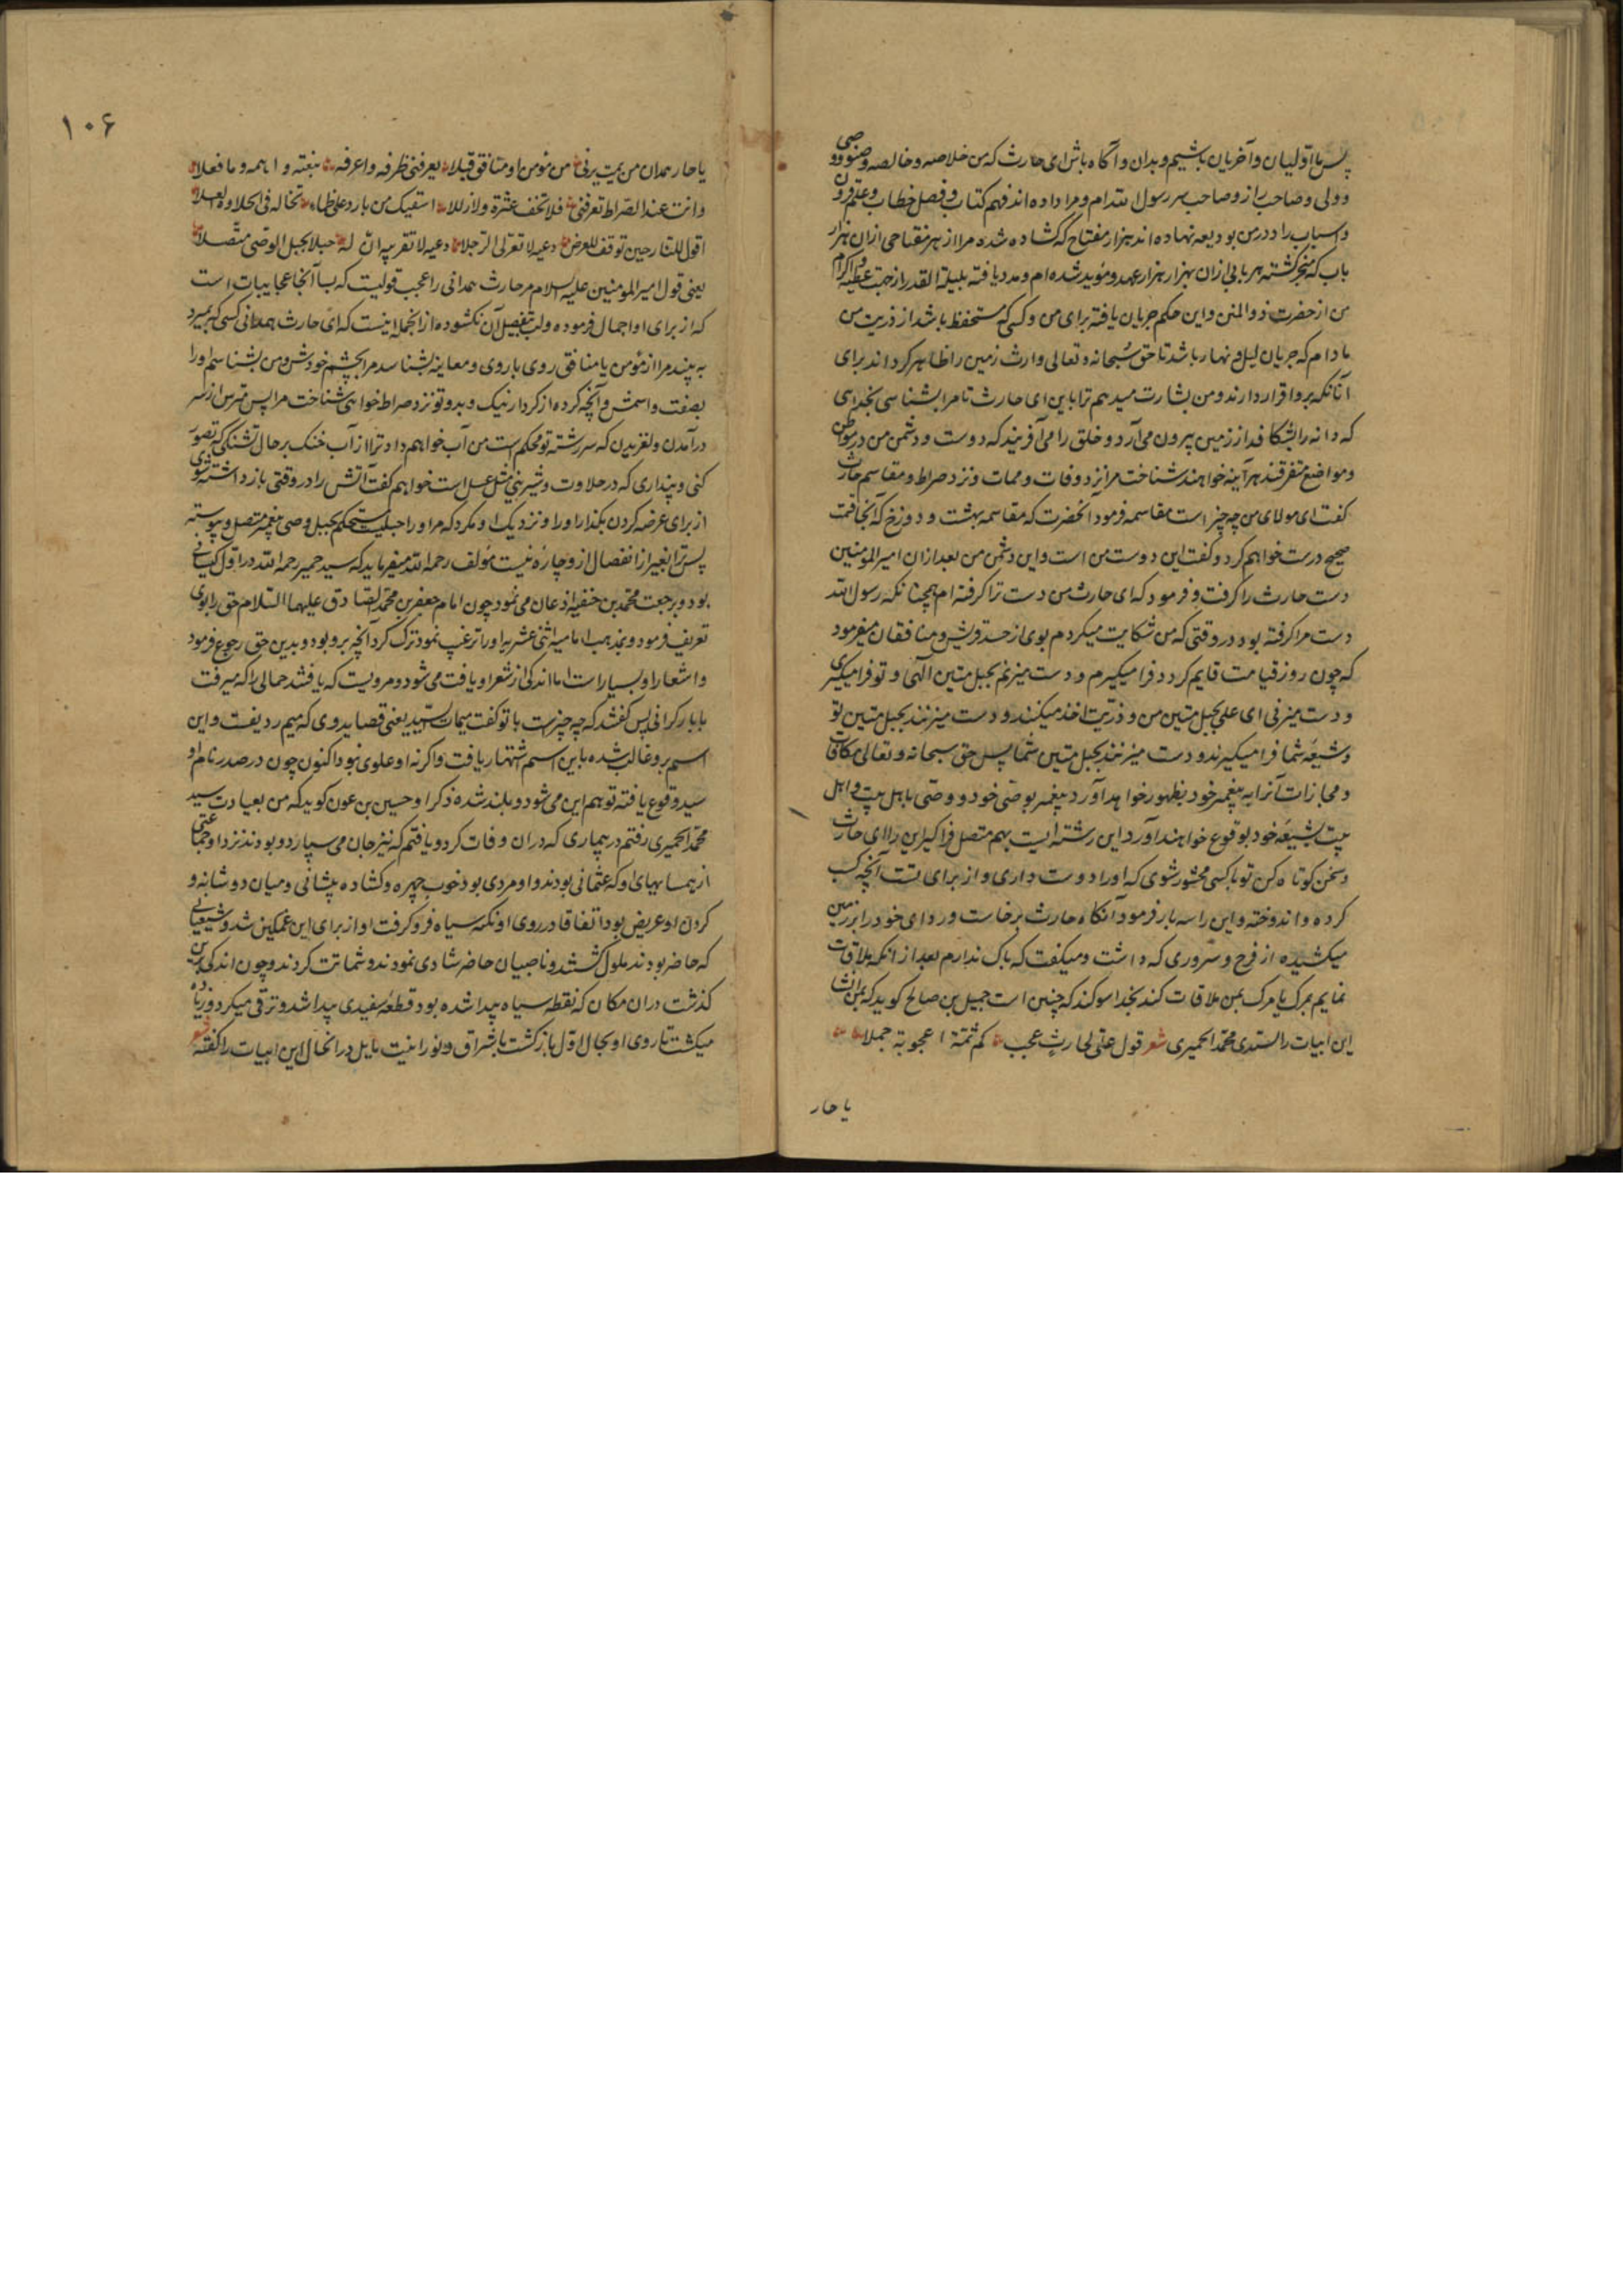 پس ما اولیان و آخریان باشیم و بدان و آگاه باش ای حارث که من خلاصه و خالصه و صنو و وصی
و ولی و صاحب راز و صاحب سر رسول الله‌ام و مرا داده‌اند فهم کتاب و فصل خطاب و علم قرون
و اسباب را و در من بودیعه نهاده‌اند هزار مفتاح که کشاده شده مرا از هر مفتاحی ازان هزار
باب که منجر کشته هر بابی ازان بهزار هزار عهد و مؤید شده‌ام و مدد یافته بلیلة القدر از جهت عطیه و اکرام
من از حضرت ذو المنن و این حکم جریان یافته برای من و کسی که مستحفظ باشد از ذریت من
مادام که جریان لیل و نهار باشد تا حق سبحانه و تعالی وارث زمین را ظاهر کرداند برای
آنانکه برو اقرار دارند و من بشارت میدهم ترا باین ای حارث تا مرا بشناسی بخدایی
که دانه را بشکافد از زمین بیرون می‌آرد و خلق را می‌آفریند که دوست و دشمن من در مواطن
و مواضع متفرقند هرآینه خواهند شناخت مرا نزد وفات و ممات و نزد صراط و مقاسم حارث
کفت ای مولای من چه چیز است مقاسمه فرمود آنحضرت که مقاسمه بهشت و دوزخ که آنجا قسمت
صحیح درست خواهم کرد و کفت این دوست من است و این دشمن من بعد ازان امیر المومنین
دست حارث را کرفت و فرمود که ای حارث من دست ترا کرفته‌ام همچنانکه رسول الله
دست مرا کرفته بود در وقتی که من شکایت میکردم بوی از حسد قریش و منافقان میفرمود
که چون روز قیامت قایم کردد فرا میکیرم و دست میزنم بحبل متین الهی و تو فرا میکیری
و دست میزنی ای علی بحبل متین من و ذریت اخذ میکنند و دست میزنند بحبل متین تو
و شیعۀ شما فرا میکیرند و دست میزنند بحبل متین شما پس حق سبحانه و تعالی مکافات
و مجازات آنرا به پیغمبر خود بظهور خواهد آورد و پیغمبر بوصی خود و وصی باهل بیت و اهل
بیت بشیعۀ خود بوقوع خواهند آورد این رشته‌ایست بهم متصل فرا کیر این را ای حارث
و سخن کوتاه کن تو با کسی محشور شوی که او را دوست داری و از برای تست آنچه کسب
کرده و اندوخته و این را سه بار فرمود آنکاه حارث برخاست و ردای خود را بر زمین
میکشیده از فرح و سروری که داشت و میکفت که باک ندارم بعد از آنکه ملاقات
نمایم بمرک یا مرک بمن ملاقات کند بخدا سوکند که چنین است جمیل بن صالح کوید که بمن انشا
این ابیات را السید محمد الحمیری شعر قول علی لحارث عجب کم ثمة اعجوبة جملا
یا حار
۱۰۶
یا حار همدان من یمت یرنی من مؤمن او منافق قبلا یعرفنی طرفه و اعرفه بنعته و اسمه و ما فعلا
و انت عند الصراط تعرفنی فلا تخف عثرة و لا زللا اسقیک من بارد علی ظماء تخاله فی الحلاوة العسلا
اقول للنار حین توقف للعرض دعیه لا تقربی الرجلا دعیه لا تقربیه ان له حبلا بحبل الوصی متصلا
یعنی قول امیر المومنین علیه السلام مر حارث همدانی را عجب قولیست که بسا آنجا عجایبات است
که از برای او اجمال فرموده و لب بتفصیل آن نکشوده از انجمله اینست که ای حارث همدانی کسی که بمیرد
به بیند مرا از مؤمن یا منافق روی باروی و معاینه بشناسد مرا بچشم خودش و من بشناسم او را
بصفت و اسمش و آنچه کرده از کردار نیک و بد و تو نزد صراط خواهی شناخت مرا پس مترس از سر
درآمدن و لغزیدن که سر رشته تو محکم است من آب خواهم داد ترا از آب خنک بر حال تشنکی که تصور
کنی و پنداری که در حلاوت و شیرینی مثل عسل است خواهم کفت آتش را در وقتی باز داشته شوی
از برای عرضه کردن بکذار او را و نزدیک او مکرد که مر او را حبلیست مستحکم بحبل وصی پیغمبر متصل و پیوسته
پس ترا بغیر از انفصال ازو چاره نیست مؤلف رحمه الله میفرماید که سید حمیر رحمه الله در اول کیسانی
بود و برجعت محمد بن حنفیه اذعان می‌نمود چون امام جعفر بن محمد الصادق علیهما السلام حق را بوی
تعریف فرمود و بمذهب امامیه اثنی عشریه او را ترغیب نمود ترک کرد آنچه برو بود و بدین حق رجوع فرمود
و اشعار او بسیار است اما اندکی از شعر او یافت می‌شود و مرویست که یافتند حمالی را که میرفت
با بار کرانی پس کفتند که چه چیزست با تو کفت میمات سید یعنی قصاید وی که میم ردیفست و این
اسم برو غالب شده باین اسم اشتهار یافت و اکرنه او علوی نبود اکنون چون در صدر نام او
سید وقوع یافته توهم این می‌شود و بلند شده ذکر او حسین بن عون کوید که من بعیادت سید
محمد الحمیری رفتم در بیماری که دران وفات کرد و یافتم که نیز جان می‌سپارد و بودند نزد او جماعتی
از همسایهای او که عثمانی بودند و او مردی بود خوب چهره و کشاده پیشانی و میان دو شانه و
کردن او عریض بود اتفاقا در روی او نکته سیاه فرو کرفت او از برای این غمکین شد و شیعیانی
که حاضر بودند ملول کشتند و ناصبیان حاضر شادی نمودند و شماتت کردند و چون اندکی برین
کذشت دران مکان که نقطه سیاه پیدا شده بود قطعۀ سفیدی پیدا شد و ترقی میکرد و زیاده
میکشت تا روی او بحال اول باز کشت باشراق و نورانیت مایل در انحال این ابیات را کفته شعر